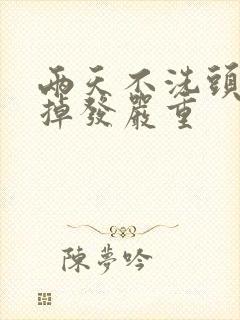 兩天不洗頭
掉發嚴重
陳夢吟